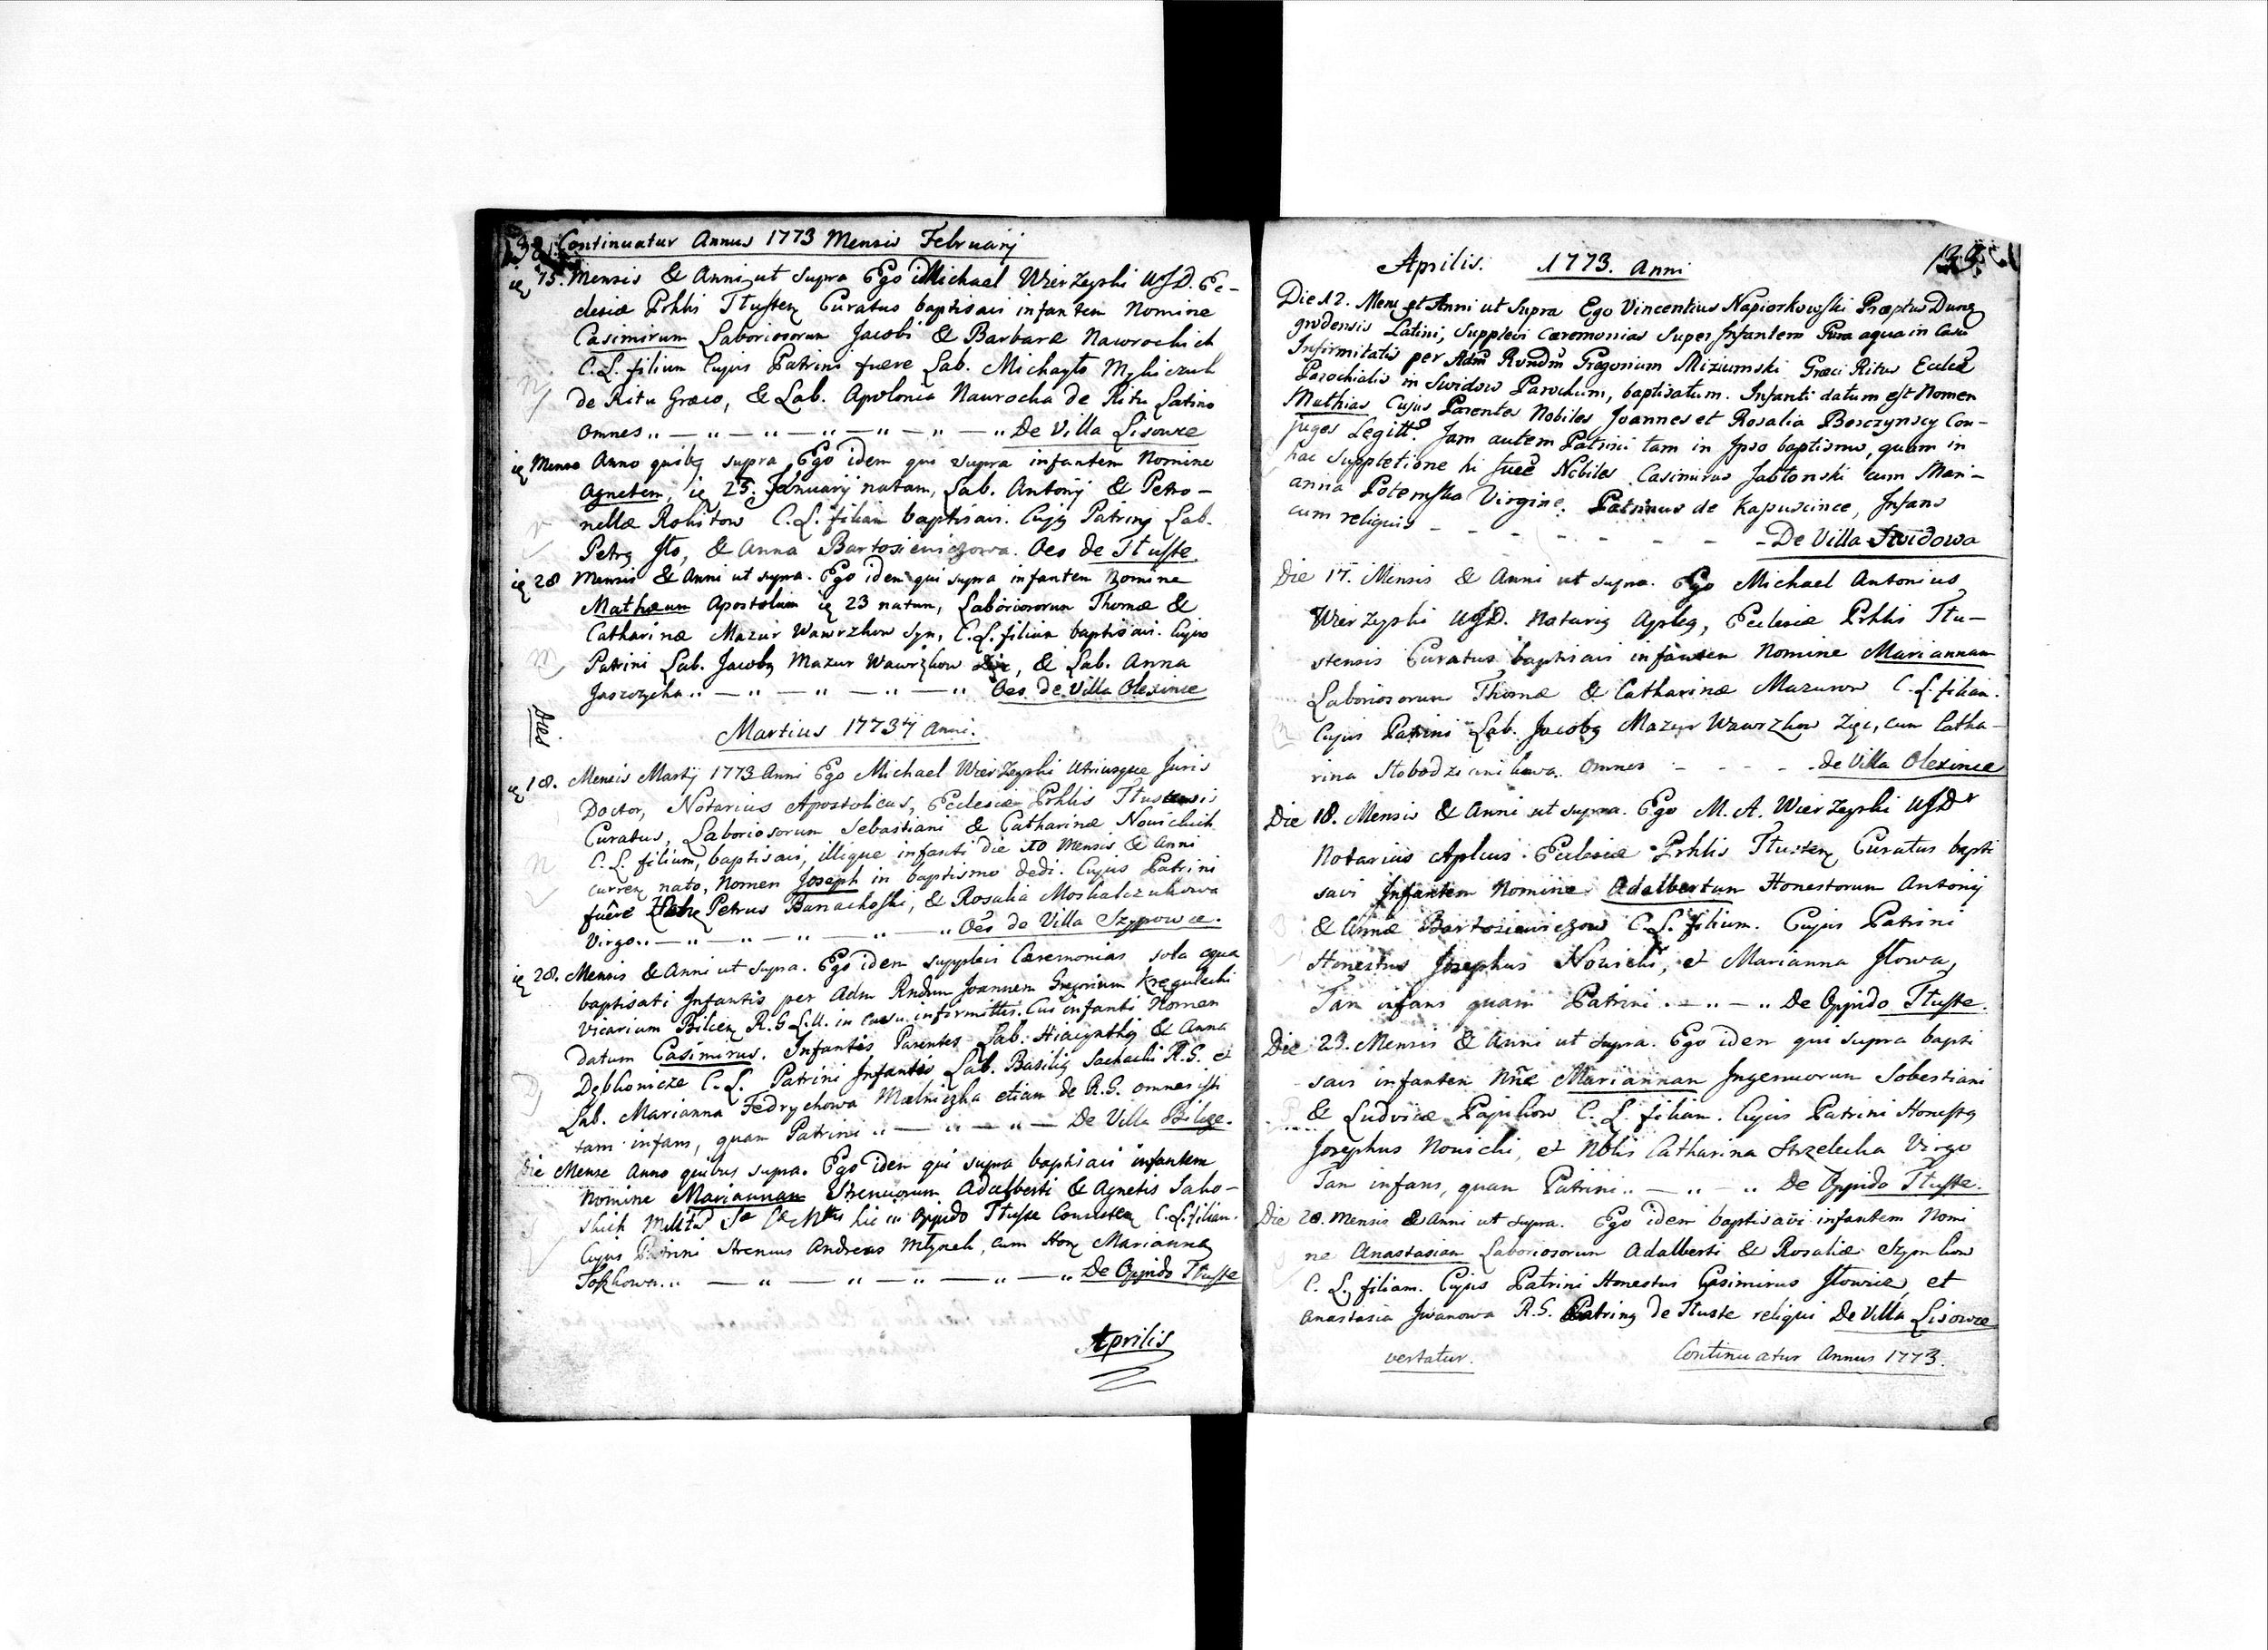 138. Continuatur Annus 1773 Mensis Februarij
15. Mensis & Anni ut supra Ego Michael Wierzeyski UJD. Ec-
clesiæ Prhlis Tłusten Curatus baptisavi infantem Nomine
Casimirum Laboriosorum Jacobi & Barbaræ Nawrockich
C. L. filium Cujus Patrini fuere Lab. Michayło
de Ritu Græco, & Lab. Apolonia Naurocka de Ritu Latino
Omnes De Villa Lisowce
Mense Anno quibg supra Ego idem qui supra infantem Nomine
Agnetem, 25. Januarij natam, Lab. Antonij & Petro-
nellæ Rokitow C. L. filiam baptisavi. Cujg Patrinj Lab.
Petrg & Anna Bartosiewiczowa. Oes de Tłuste
28 Mensis & Anni ut supra. Ego idem qui supra infantem Nomine
Mathæum Apostolum 23 natum, Laboriosorum Thomæ &
Catharinæ Mazur Wawrzkow Syn, C. L. filium baptisavi. Cujus
Patrini Lab. Jacobg Mazur Wawrzkow & Lab. Anna
Jaszczycha Oes de Villa Olexince
Dies
Martius 1773 Anni.
18. Mensis Martij 1773 Anni Ego Michael Wierzeyski Utriusque Juris
Doctor, Notarius Apostolicus, Ecclesiæ Prhlis Tłustensis
Curatus, Laboriosorum Sebastiani & Catharinæ Nowickich
C. L. filium, baptisavi, illique infanti die 10 Mensis & Anni
curren nato, Nomen Joseph in baptismo dedi. Cujus Patrini
fuêre Petrus Banachoski, & Rosalia Moskalczukowa
Virgo Oes de Villa Szypowce.
28. Mensis & Anni ut supra. Ego idem supplevi Cæremonias sola aqua
baptisati Infantis per Adm Rndum Joannem Gregorium Kregulecki
Vicarium Bilcen R. G. L. U. in casu infirmittis. Cui infanti Nomen
datum Casimirus. Infantis Parentes Lab. Hiacynthg & Anna
C. L. Patrini Infantis Lab. Basilig Sachacki R. G. et
Lab. Marianna Fedrychowa Mælniczka etiam de R. G. omnes isti
tam infans, quam Patrini De Villa Bilcze.
Die Mense Anno quibus supra. Ego idem qui supra baptisavi infantem
Nomine Mariannam Strenuorum Adalberti & Agnetis Saho-
skich hic in Oppido Tłuste C. L. filiam.
Cujus Patrini Strenuus Andreas Młynek, cum Hon Marianna
De Oppido Tłuste
Aprilis
Aprilis. 1773. Anni 139
Die 12. Mens et Anni ut Supra Ego Vincentius Napiorkowski Præptus Dung
grodensis Latini, Supplevi Cæremonias Super Infantem Pura aqua in Casu
Infirmitatis per Adm Rvndm Gregorium Miziumski Græci Ritus Eccliæ
Parochialis in Swidow Parochum, baptisatum. Infanti datum est Nomen
Mathias Cujus Parentes Nobiles Joannes et Rosalia Borczynscy Con-
juges Legitt. Jam autem Patrini tam in Ipso baptismo, quam in
hac Suppletione hi fuere Nobiles Casimirus Jabłonski cum Mari-
anna Potemska Virgine. Patrinus de Kapuscince, Infans
cum reliquis De Villa Swidowa
Die 17. Mensis & Anni ut supra. Ego Michael Antonius
Wierzeyski UJD. Notarig Apleg, Ecclesiæ Prhlis Tłu-
stensis Curatus baptisavi infantem Nomine Mariannam
Laboriosorum Thomæ & Catharinæ Mazurow C. L. filiam.
Cujus Patrini Lab. Jacobg Mazur Wawrzkow Zięc, cum Catha-
rina Omnes de Villa Olexince
Die 18. Mensis & Anni ut supra. Ego M. A. Wierzeyski UJDr
Notarius Aplcus. Ecclesiæ Prhlis Tłusten Curatus bapti
savi Infantem Nomine Adalbertum Honestorum Antonij
& Annæ Bartosiewiczow C. L. filium. Cujus Patrini
Honestus Josephus Nowicki, et Marianna Iłowa,
Tam infans quam Patrini De Oppido Tłuste.
Die 23. Mensis & Anni ut supra. Ego idem qui supra bapti
savi infantem Nne Mariannam Ingenuorum Sobestiani
& Ludvicæ C. L. filiam. Cujus Patrini Honestg
Josephus Nowicki, et Nblis Catharina Strzelecka Virgo
Tam infans, quam Patrini De Oppido Tłuste.
Die 28. Mensis & Anni ut supra. Ego idem baptisavi infantem Nomi
ne Anastasiam Laboriosorum Adalberti & Rosaliæ Szymkow
C. L. filiam. Cujus Patrini Honestus Casimirus et
Anastasia Iwanowa R. G. Patring de Tłuste reliqui De Villa Lisowce
vertatur. Continuatur Annus 1773.